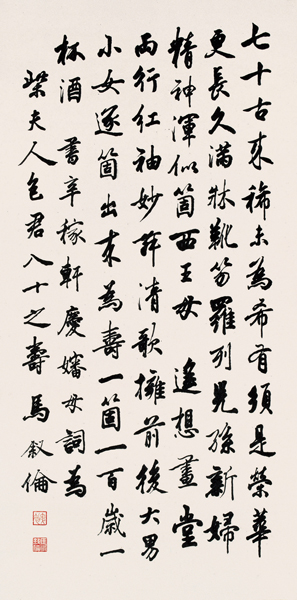 七十古来稀未為希有須是榮華
更長久滿牀靴笏羅列兒孫新婦
精神渾似箇西王母　遙想畫堂
兩行紅袖妙舞清歌擁前後大男
小女逐箇出来為壽一箇一百歲一
杯酒　書辛稼軒慶嬸母詞為
柴夫人包君八十之壽　馬叙倫